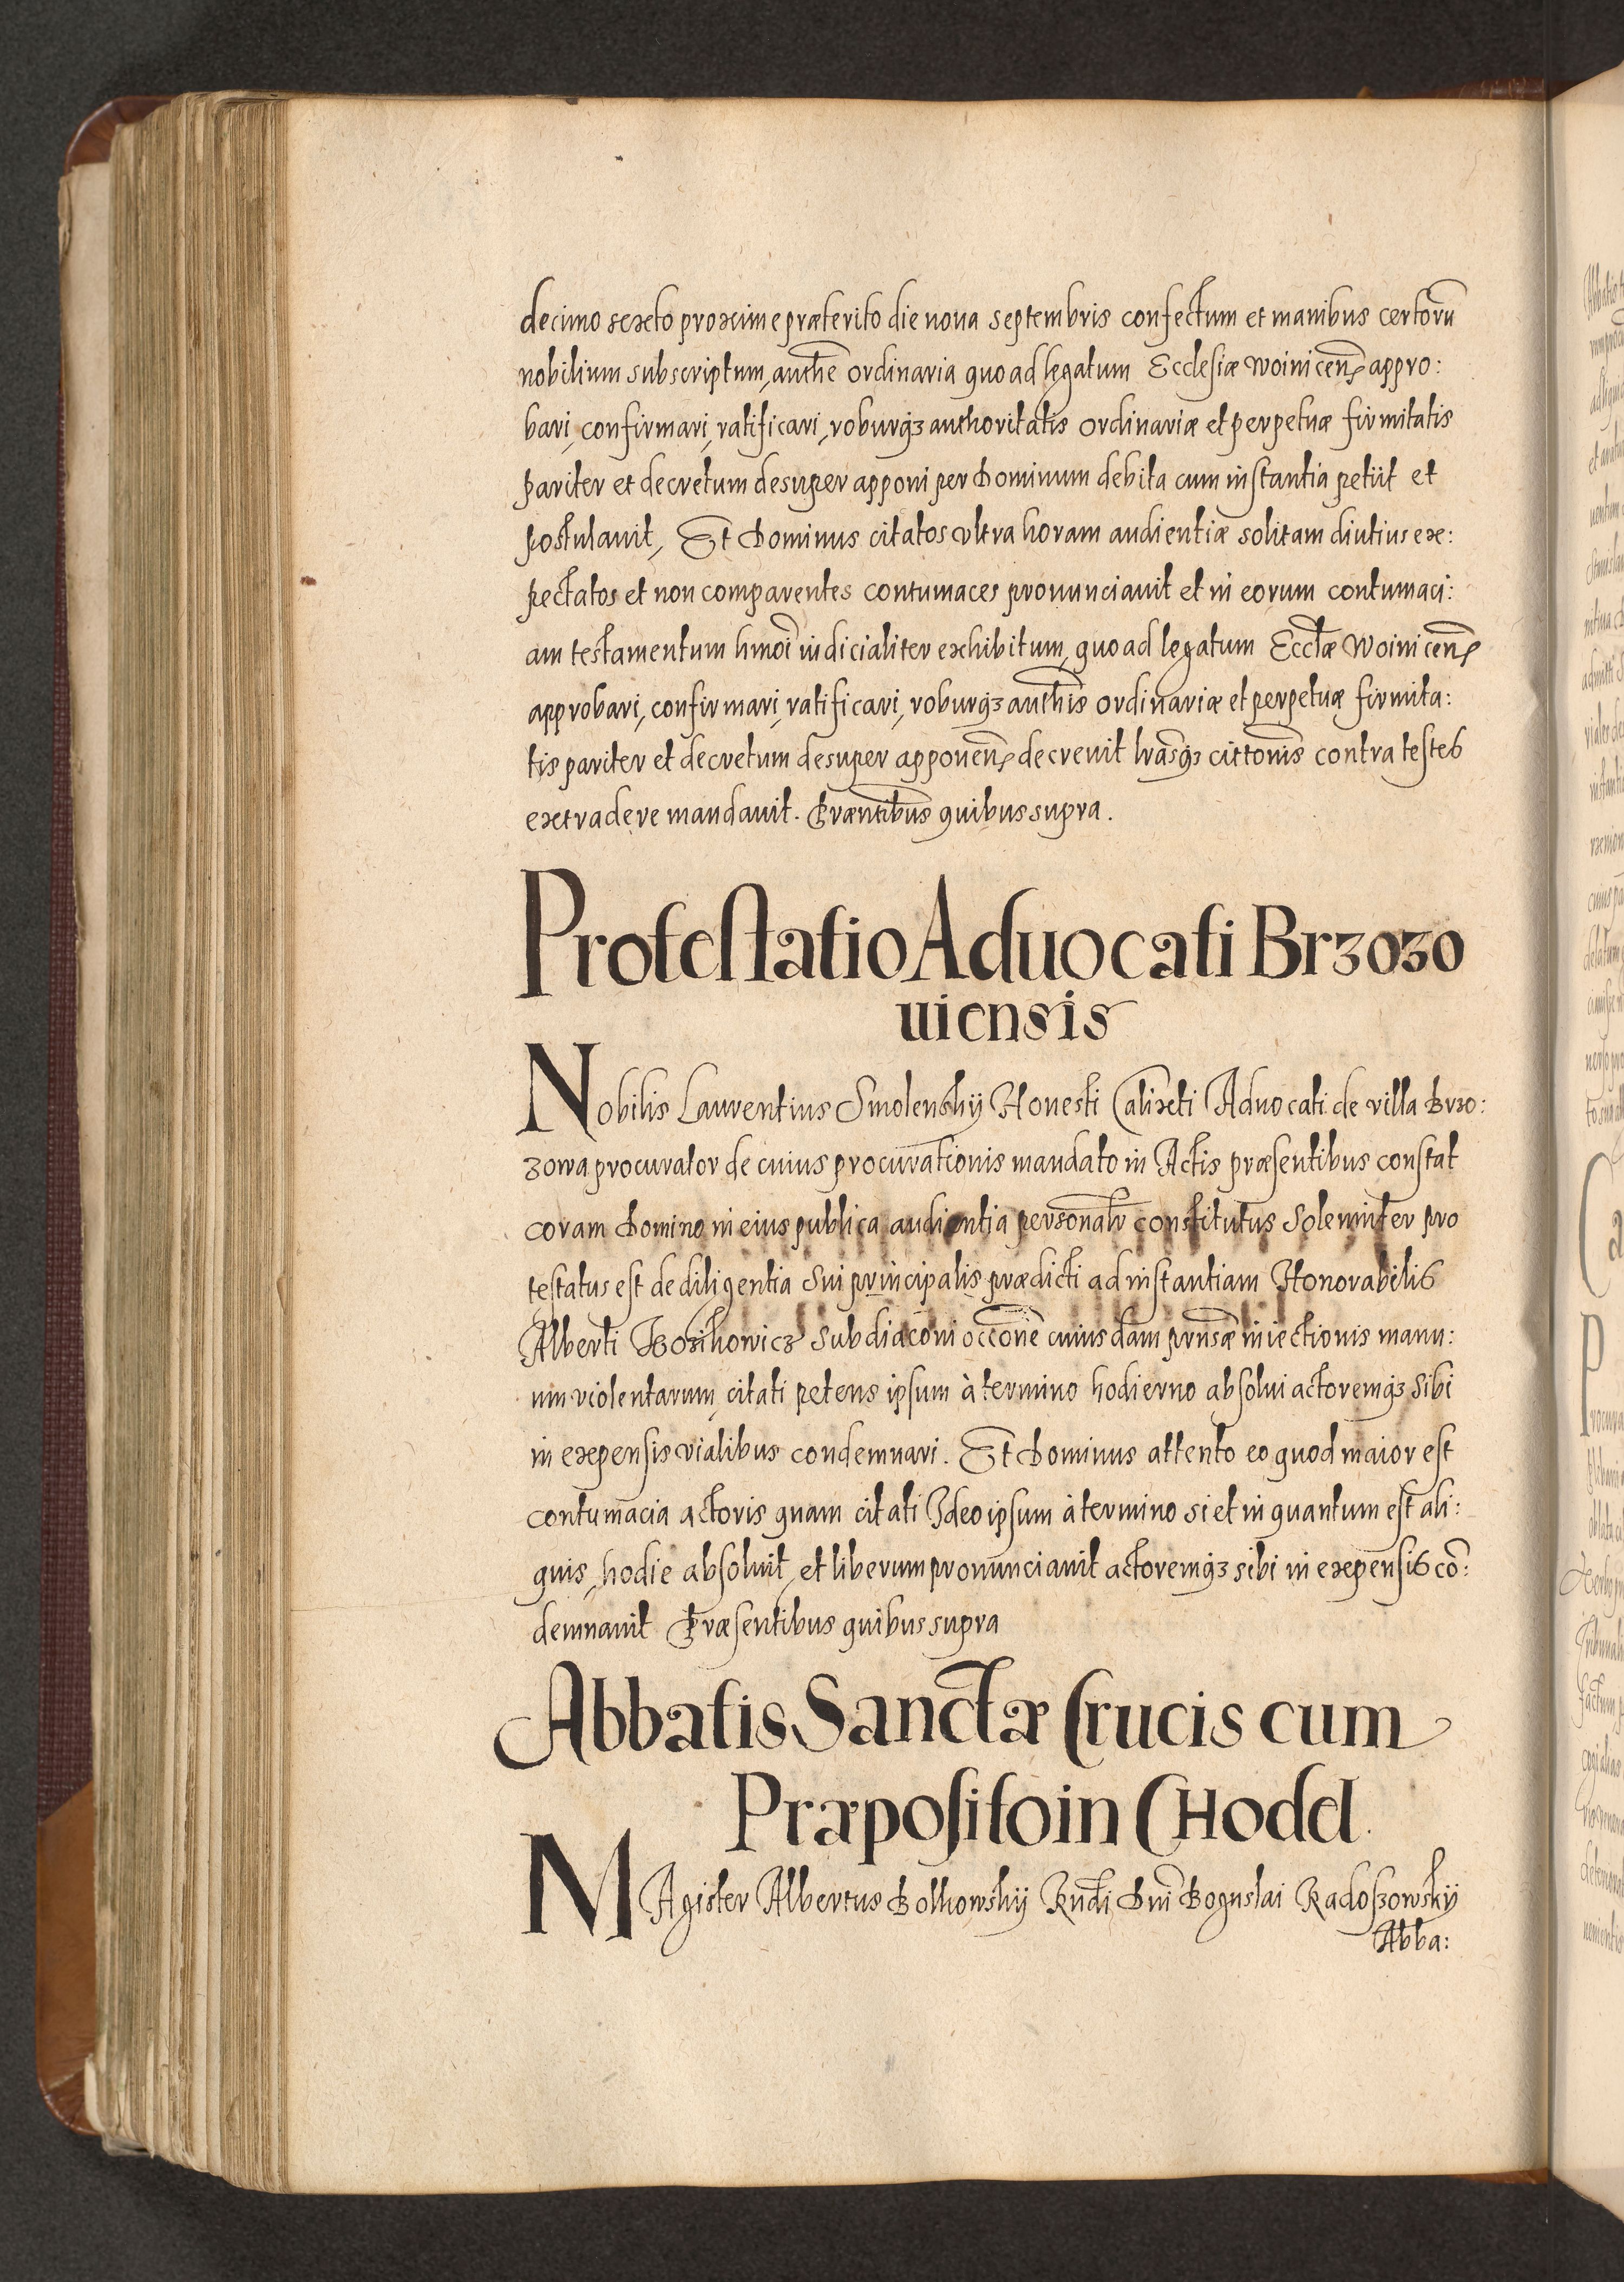 decimo sexto proxime præterito die nona septembris confectum et manibus certorū
nobilium subscriptum, authē ordinaria quo ad legatum Ecclesiæ Woinicen̄ appro:
bari, confirmari, ratificari, roburq̃ȝ authoritatis ordinariæ et perpetuæ firmitatis
pariter et decretum desuper apponi per Dominum debita cum instantia petijt et
postulauit, Et Dominus citatos vltra horam audientiæ solitam diutius ex:
pectatos et non comparentes contumaces pronunciauit et in eorum contumaci:
am testamentum hmōi iudicialiter exhibitum, quo ad legatum Eccl̄æ Woinicen̄
approbari, confirmari, ratificari, roburq̃ȝ auth̄is ordinariæ et perpetuæ firmita:
tis pariter et decretum desuper apponen̄ decreuit l̄rasq̃ȝ citt̄onis contra testes
extradere mandauit. Præntibus quibus supra.
Protestatio Aduocati Brzozo
uiensis
Nobilis Laurentius Smolenskij Honesti Calixti Aduocati de villa Brzo:
zowa procurator de cuius procurationis mandato in Actis præsentibus constat
coram Domino in eius publica audientia personalr̄ constitutus Solemniter pro
testatus est de diligentia Sui principalis prædicti ad instantiam Honorabilis
Alberti Kozikowicz Subdiaconi occōne cuiusdam prn̄sæ iniectionis manu:
um violentarum, citati petens ipsum à termino hodierno absolui actoremq̃ȝ Sibi
in expensis vialibus condemnari. Et Dominus attento eo quod maior est
contumacia actoris quam citati Ideo ipsum à termino si et in quantum est ali:
quis, hodie absoluit, et liberum pronunciauit actoremq̃ȝ sibi in expensis cō:
demnauit Præsentibus quibus supra
Abbatis Sanctæ Crucis cum
Præposito in CHodel.
MAgister Albertus Bolkowskij Rn̄di Dn̄i Boguslai Radoszowskij
Abba: